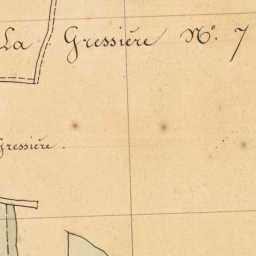 La Gressière N°. 7
Gressière.